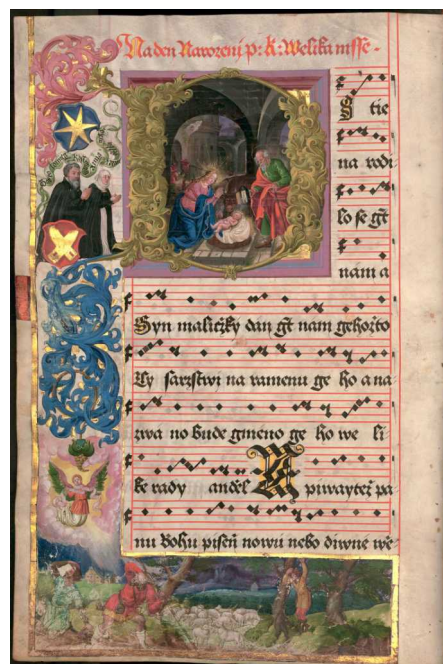 Na den Narozeni p: K: Welika msse.
S tie
na rodi
lo se gt
nám a
Syn maličzky dan gt nam gehožto
ti na ramenu ge ho a na-
zwa no bude gmeno ge ho we li
ke rady anděl Z piwayteż pa-
nu Bohu piseň nowu nebo diwne we-